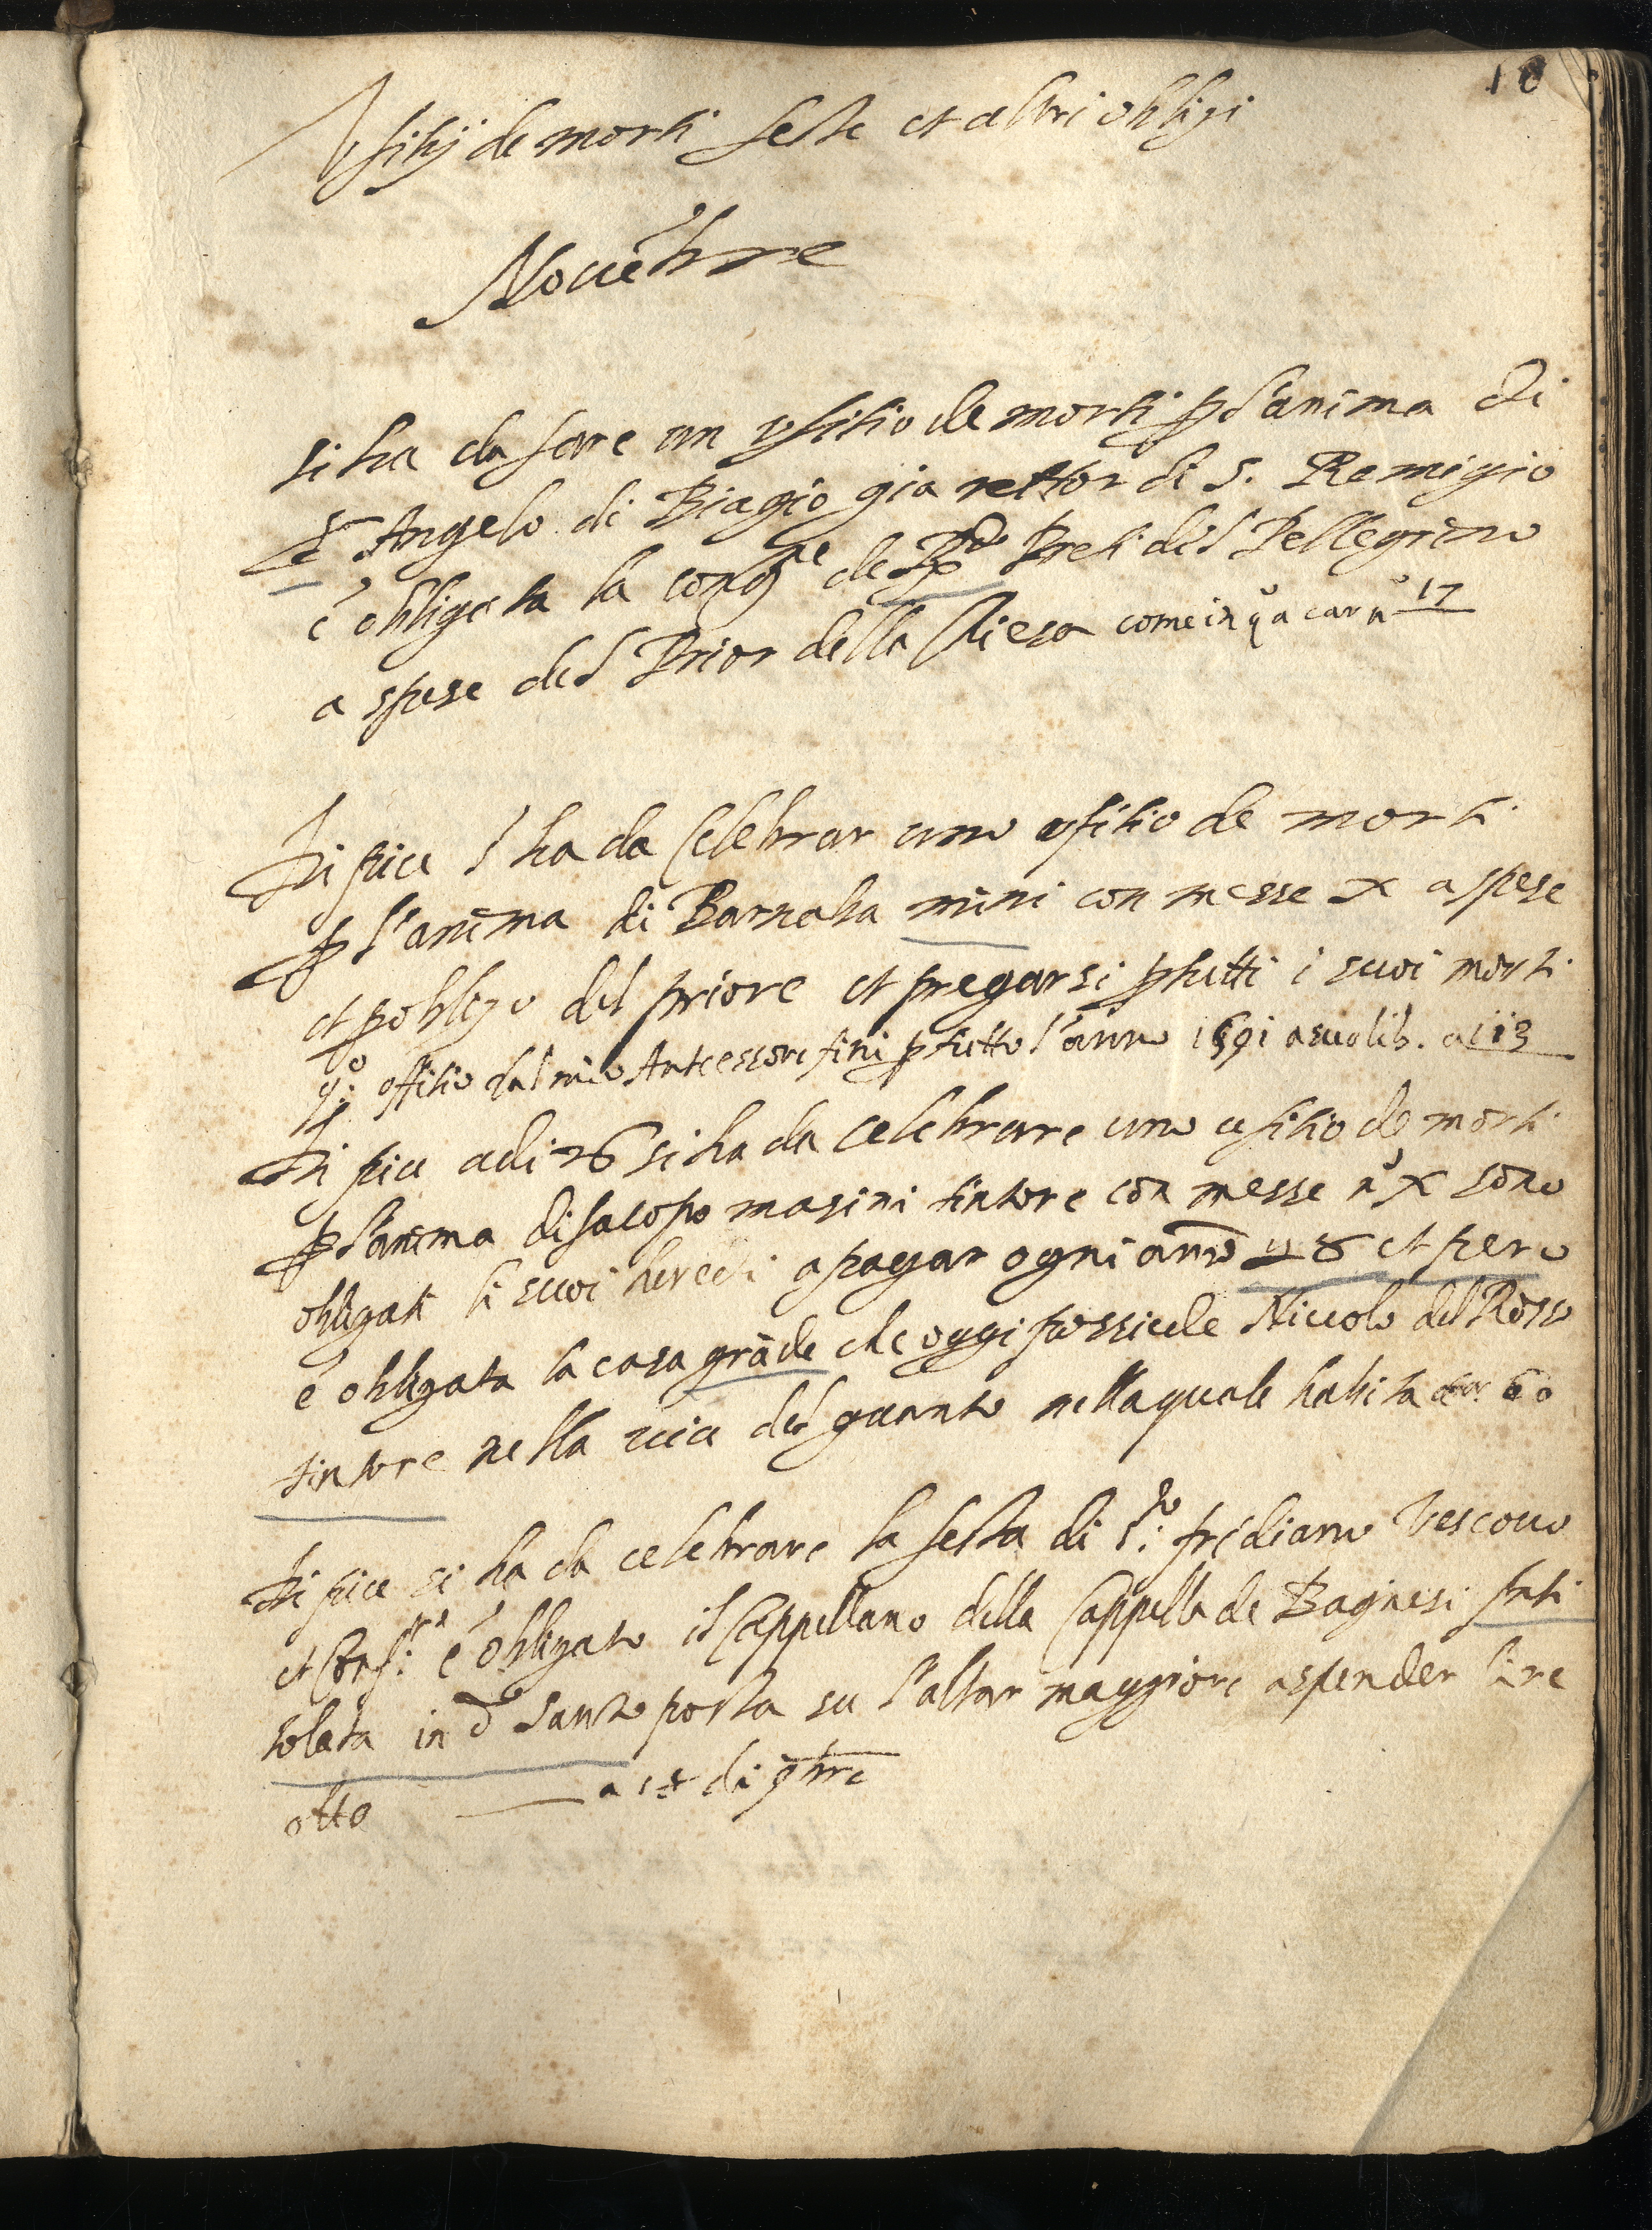 10
Vfitij de morti feste et altri oblighi
Nouẽbre
si ha da fare un vfitio de morti p l'anima di
Sr Angelo di Biagio gia rettor di S. Remigio
è obligata la congne de Preti del Pellegrino
a spese del Prior della Chiesa come in qo a car no 17
Di piu s'ha da Celebrar uno vfitio de morti
p l'anima di Barnaba mini con messe x a spese
et p obligo del priore et pregarsi p tutti i suoi morti
qo: offitio dal mio Antecessore finì p tutto l'anno 1591 a suo lib. a 113
Di piu adi 26 si ha da celebrare uno ufitio de morti
p l'anima di Jacopo masini tintore con messe no x sono
obligati li suoi heredi a pagar ogni anno 8 et pero
è obligata la casa grãde che oggi possiede Niccolo del Rosso
tintore nella uia del guanto nella quale habita car. 60
Di piu si ha da celebrare la festa di Sto: fridiano Vescouo
et Confre: è obligato il Cappellano della Cappella de Bagnesi
solata in do Santo posta su l'altar maggiore a spender lire
otto a 18 di 9bre